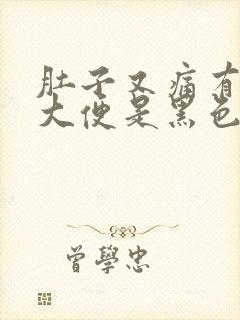 肚子又痛有
大便是黑色
曾學忠